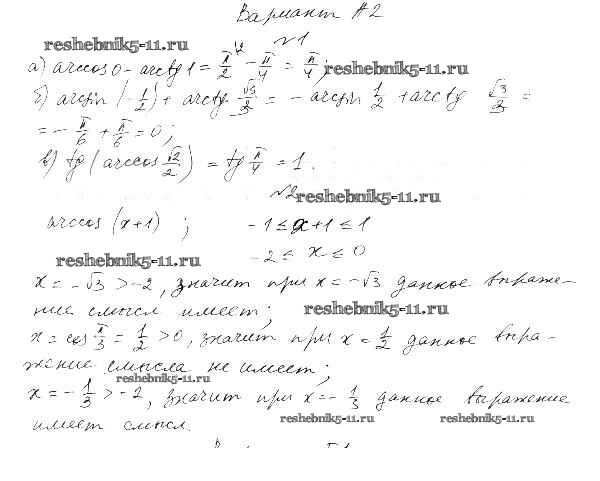 Вариант А2
№1
reshebnik5-11.ru
а) arccos 0 - arctg 1 = π/2 - π/4 = π/4; reshebnik5-11.ru
б) arcsin (-1/2) + arctg √3/3 = - arcsin 1/2 + arctg √3/3 =
= - π/6 + π/6 = 0;
в) tg (arccos √2/2) = tg π/4 = 1.
№2 reshebnik5-11.ru
arccos (x+1) ; -1 ≤ x+1 ≤ 1
reshebnik5-11.ru -2 ≤ x ≤ 0
x = -√3 > -2, значит при x = -√3 данное выраже-
ние смысл имеет; reshebnik5-11.ru
x = cos π/3 = 1/2 > 0, значит при x = 1/2 данное выра-
жение смысла не имеет;
reshebnik5-11.ru
x = -1/3 > -2, значит при x = -1/3 данное выражение
имеет смысл. reshebnik5-11.ru reshebnik5-11.ru